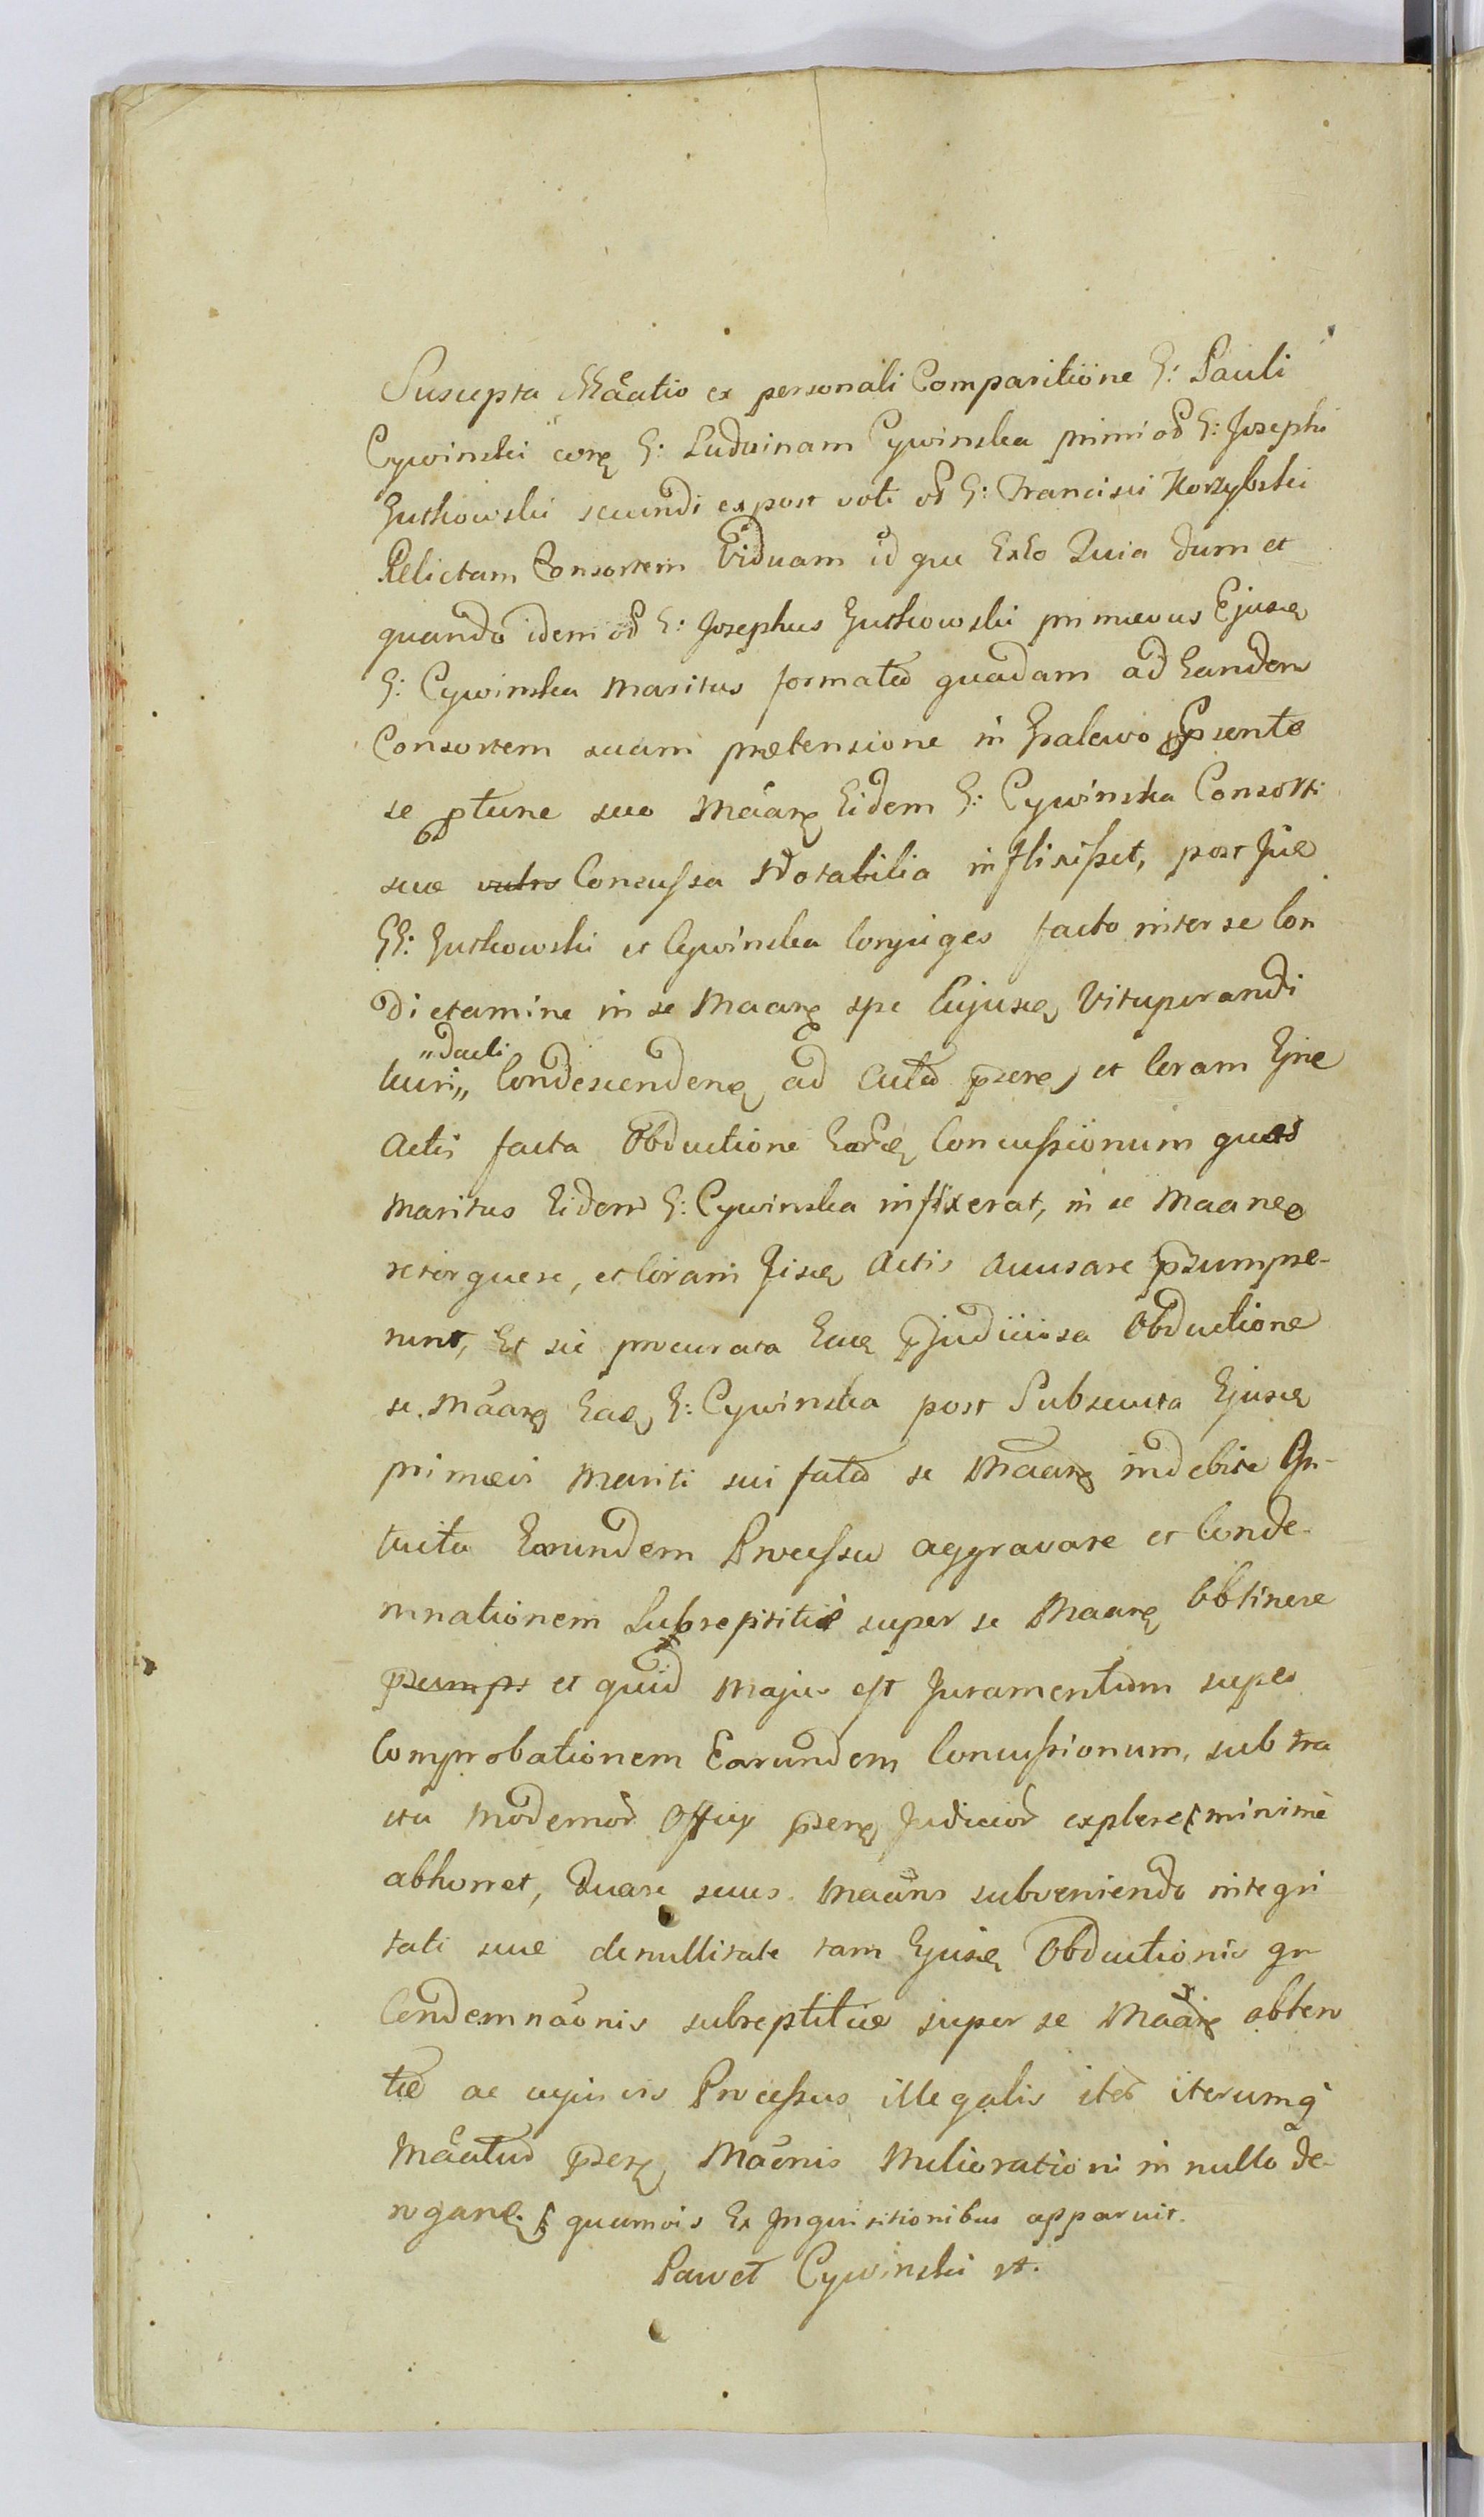 Suscepta Mãatio ex personali Comparitione G: Pauli
Cywinski corą G: Ludwinam Cywinska primi od G: Josephi
Gutkowski secundi expost voti od G: Francisci Korzybski
Relictam Consortem Viduam id que Exło Quia dum et
quando idem od G: Josephus Gutkowski primaevus Ejusą
G: Cywinska Maritus formata quadam ad Eandem
Consortem suam praetensione in
se sua Mãarę Eidem G: Cywinska Consorti
suae Concussa Notabilia inflixisset, post
GG: Gutkowski et Cywinska Conjuges facto inter se Con
dictamine in se Maarę spe Cujusą Vituperandi
"dacti
luiri,, Condescendenę ad Acta psenę, et Coram
Actis facta Obductione Concussionum quas
Maritus Eidem G: Cywinska inflixerat, in se Maanę
retorquere, et Coram Actis accusare psumpse-
runt, Et sic procurata Eaą pjudiciosa Obductione
se. Mãarę Eaą G: Cywinska post Subsecuta Ejusą
primaevi Mariti sui fata se Mãarę indebite
tuita Earundem Processu aggravare et Conde-
mnationem Subreptitie super se Maarę Obtinere
psumps et quid Majus est Juramentum super
Comprobationem Earundem Concussionum, sub tra
ctu Modernor Officy psenę Judicior explere minime
abhorret, Quare suus Maãns subveniendo integri
tati suae de nullitate tam Ejusą Obductionis
Condemnãonis subreptitiae super se Mãarę obten
tae ac cujusvis Processus illegalis iter iterumq
Mãatur psenę Mãonis Melioratione in nullo de-
rogane. quamvis Ex Inquisitionibus apparuit.
Paweł Cywinski